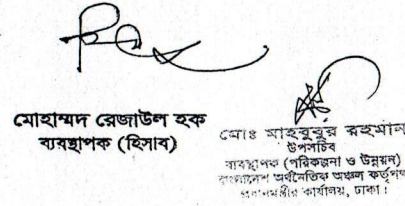 মোহাম্মদ রেজাউল হক
ব্যবস্থাপক (হিসাব)
মোঃ মাহবুবুর রহমান
উপসচিব
ব্যবস্থাপক (পরিকল্পনা ও উন্নয়ন)
বাংলাদেশ অর্থনৈতিক অঞ্চল কর্তৃপক্ষ
প্রধানমন্ত্রীর কার্যালয়, ঢাকা।